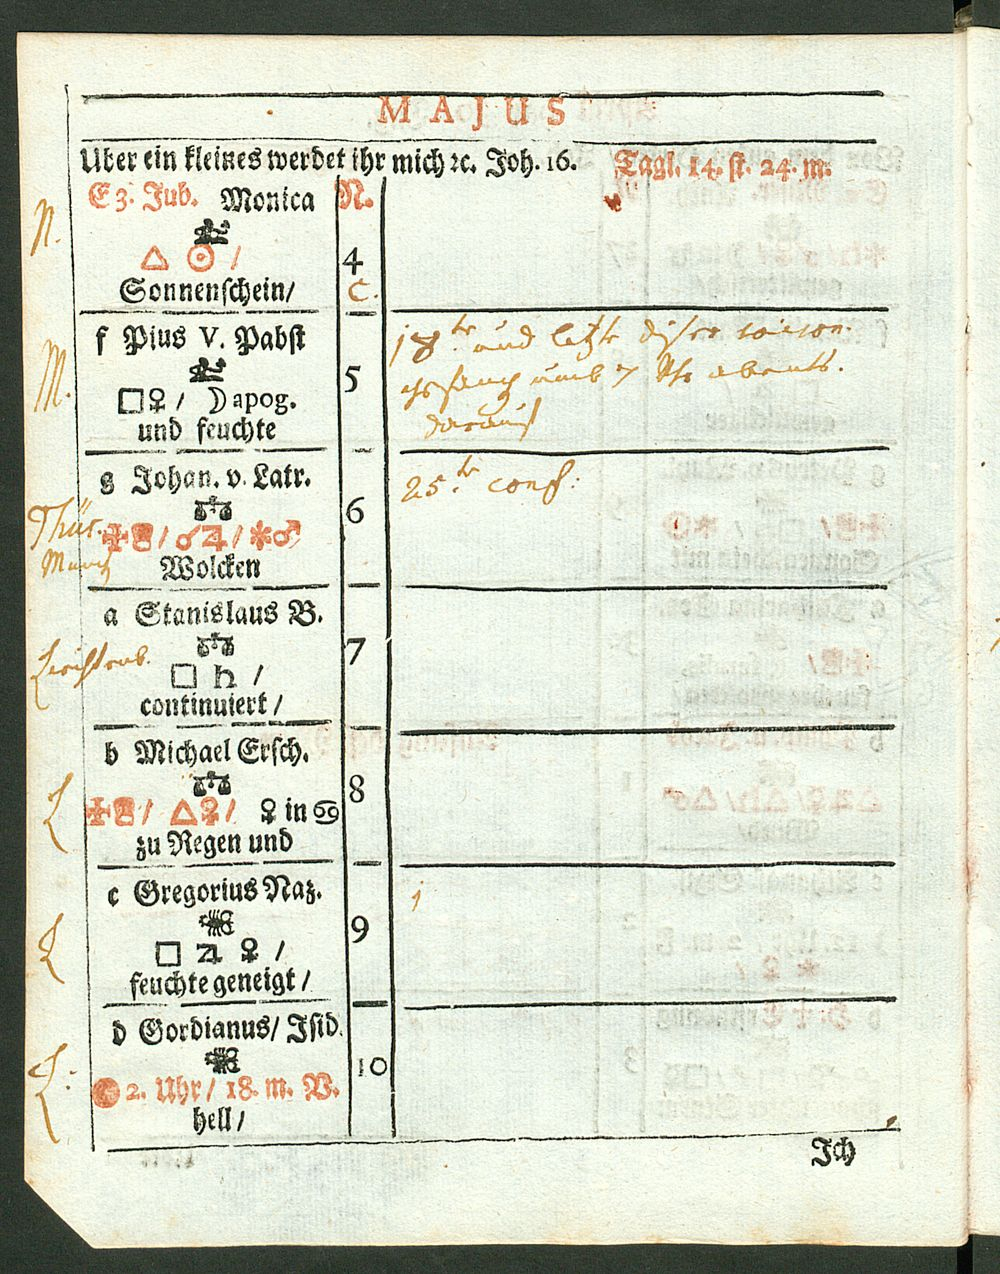 MAJUS
Uber ein kleines werdet ihr mich ꝛc. Joh. 16. Tagl. 14. st. 24. m.
E 3. Jub. Monica N.
N.
△ ☉ / 4
Sonnenschein/ C.
f Pius V. Pabst
18te und letzte diser
M. 5
umb 7 Uhr abents.
□ ♀ / ☽ apog.
und feuchte darauf
g Johan. v. Latr.
25.te conf:
6
Thür.
/ ☌ ♃ / ✱ ♂
Wolcken
a Stanislaus B.
7
□ ♄ /
continuiert /
b Michael Ersch.
L 8
/ △ ♀ / ♀ in ♋
zu Regen und
c Gregorius Naz.
1
L 9
□ ♃ ♀ /
feuchte geneigt /
d Gordianus / Isid.
L. 10
☾ 2. Uhr / 18. m. V.
hell /
Ich